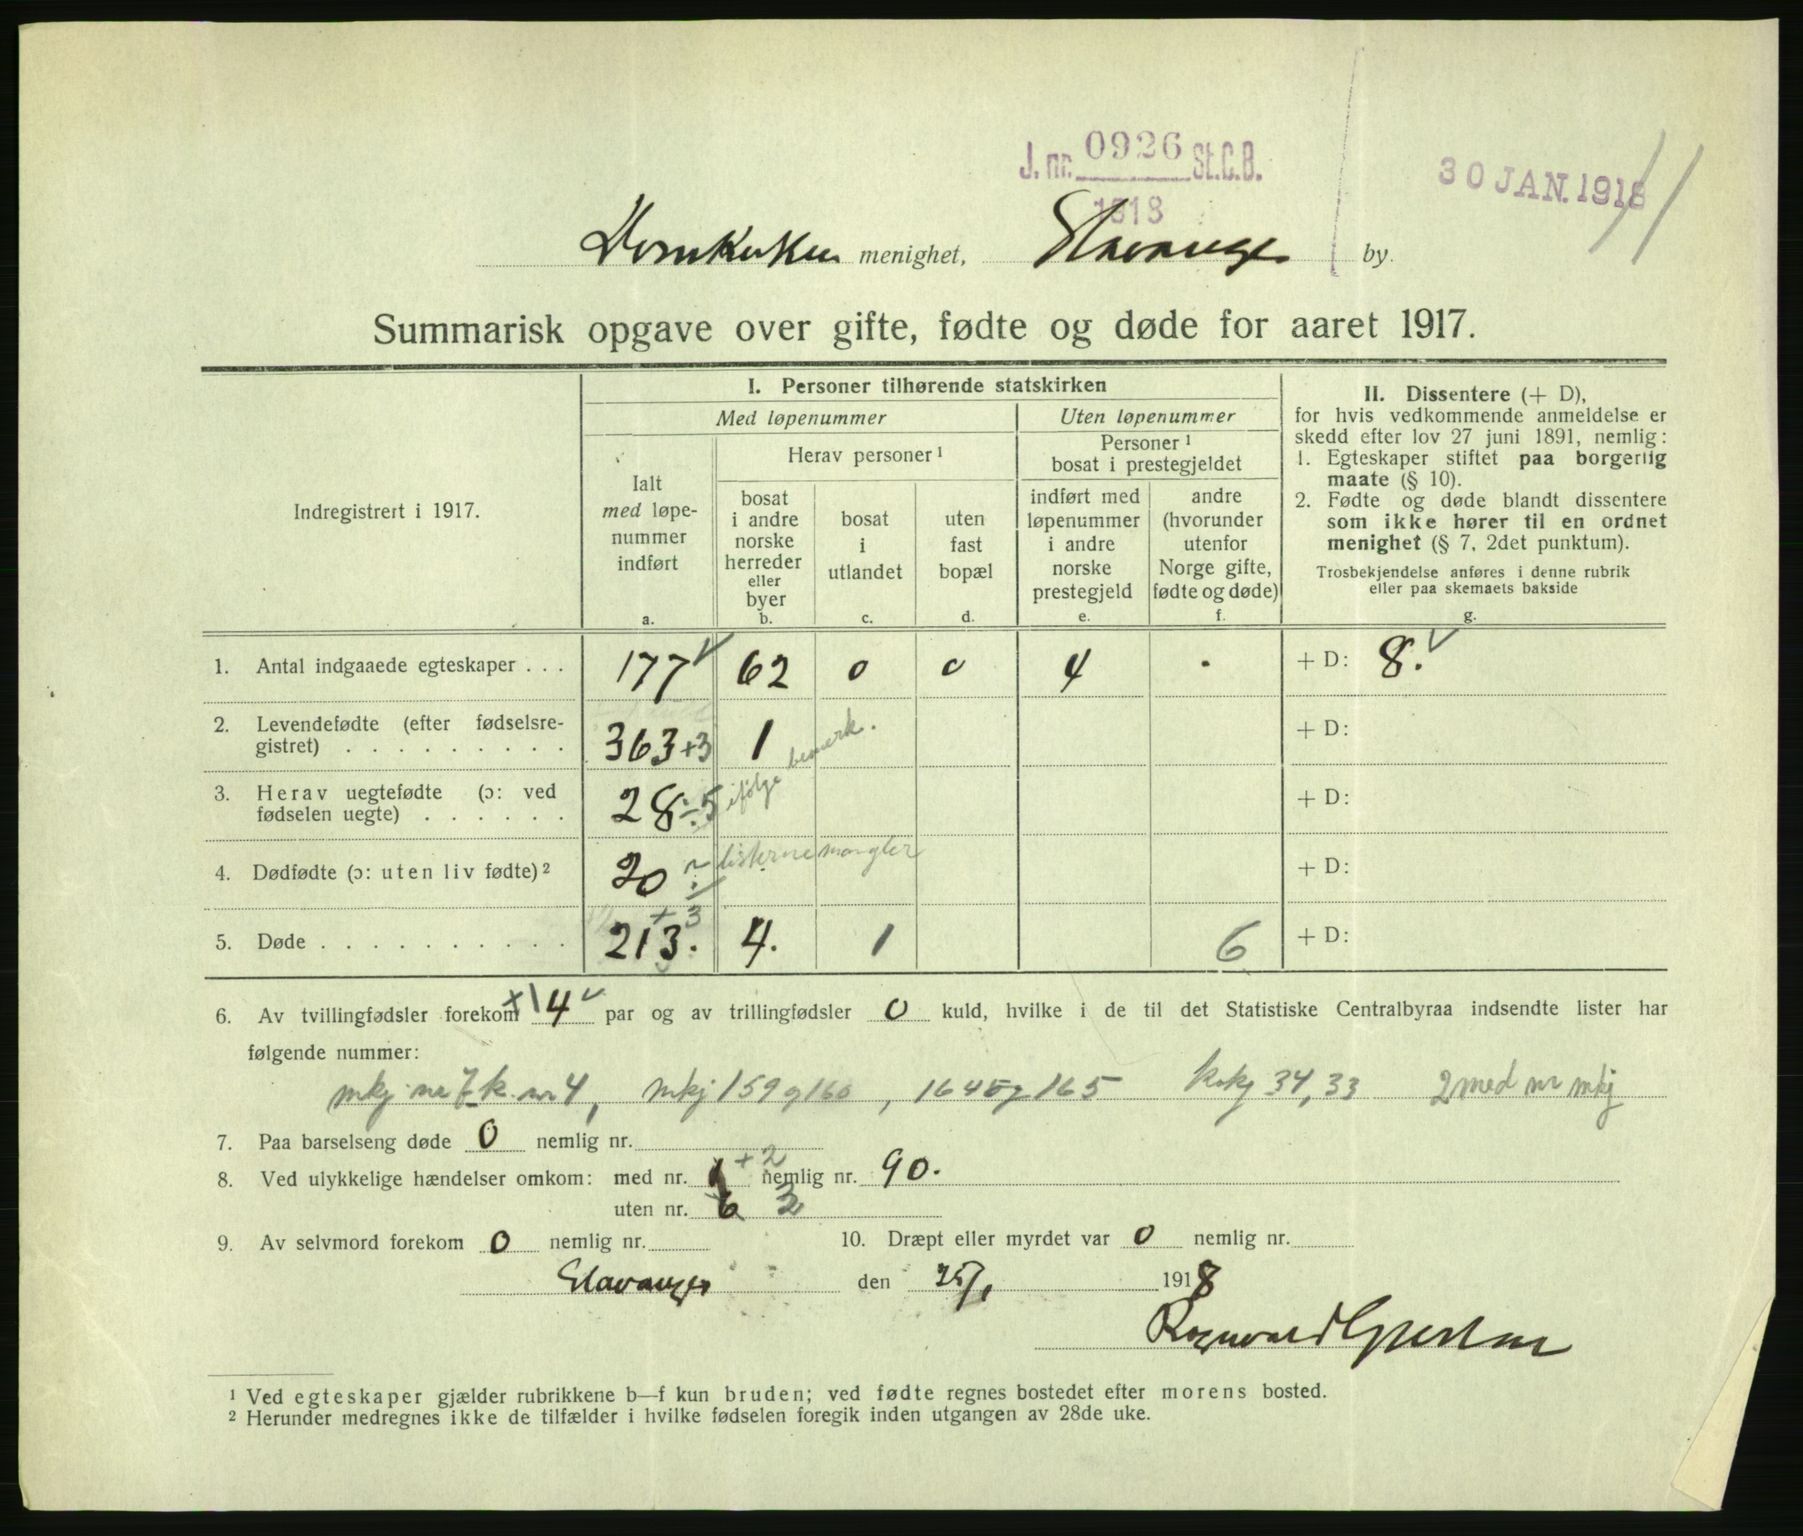 J. nr. 0926 St.C.B.
1918
30 JAN. 1918
Domkirken menighet, Stavanger by.
Summarisk opgave over gifte, fødte og døde for aaret 1917.
Indregistrert i 1917.
I. Personer tilhørende statskirken
Med løpenummer
Uten løpenummer
Ialt
med løpe-
nummer
indført
a.
Herav personer ¹
bosat
i andre
norske
herreder
eller
byer
b.
bosat
i
utlandet
c.
uten
fast
bopæl
d.
Personer ¹
bosat i prestegjeldet
indført med
løpenummer
i andre
norske
prestegjeld
e.
andre
(hvorunder
utenfor
Norge gifte,
fødte og døde)
f.
II. Dissentere (+ D),
for hvis vedkommende anmeldelse er
skedd efter lov 27 juni 1891, nemlig:
1. Egteskaper stiftet paa borgerlig
maate (§ 10).
2. Fødte og døde blandt dissentere
som ikke hører til en ordnet
menighet (§ 7, 2det punktum).
Trosbekjendelse anføres i denne rubrik
eller paa skemaets bakside
g.
1. Antal indgaaede egteskaper . . . 177 62 0 0 4 . + D: 8.
2. Levendefødte (efter fødselsre-
gistret) . . . . . . . . . 363 +3 1 + D:
3. Herav uegtefødte (ɔ: ved
fødselen uegte) . . . . . . 28 ÷5 ifølge bemerk. + D:
4. Dødfødte (ɔ: uten liv fødte) ² 20 listerne mangler + D:
+ 3
5. Døde . . . . . . . . . . 213. 4. 1 6 + D:
6. Av tvillingfødsler forekom 14 par og av trillingfødsler 0 kuld, hvilke i de til det Statistiske Centralbyraa indsendte lister har
følgende nummer:
mkj nr 7 k. nr 4, mkj 159 og 160, 164 og 165 kokj 34, 33 2 med nr mkj
7. Paa barselseng døde 0 nemlig nr.
8. Ved ulykkelige hændelser omkom: med nr. 1 +2 nemlig nr. 90.
uten nr. 6 3
9. Av selvmord forekom 0 nemlig nr. 10. Dræpt eller myrdet var 0 nemlig nr.
Stavanger den 25/1 1918
Ragnvald
¹ Ved egteskaper gjælder rubrikkene b—f kun bruden; ved fødte regnes bostedet efter morens bosted.
² Herunder medregnes ikke de tilfælder i hvilke fødselen foregik inden utgangen av 28de uke.